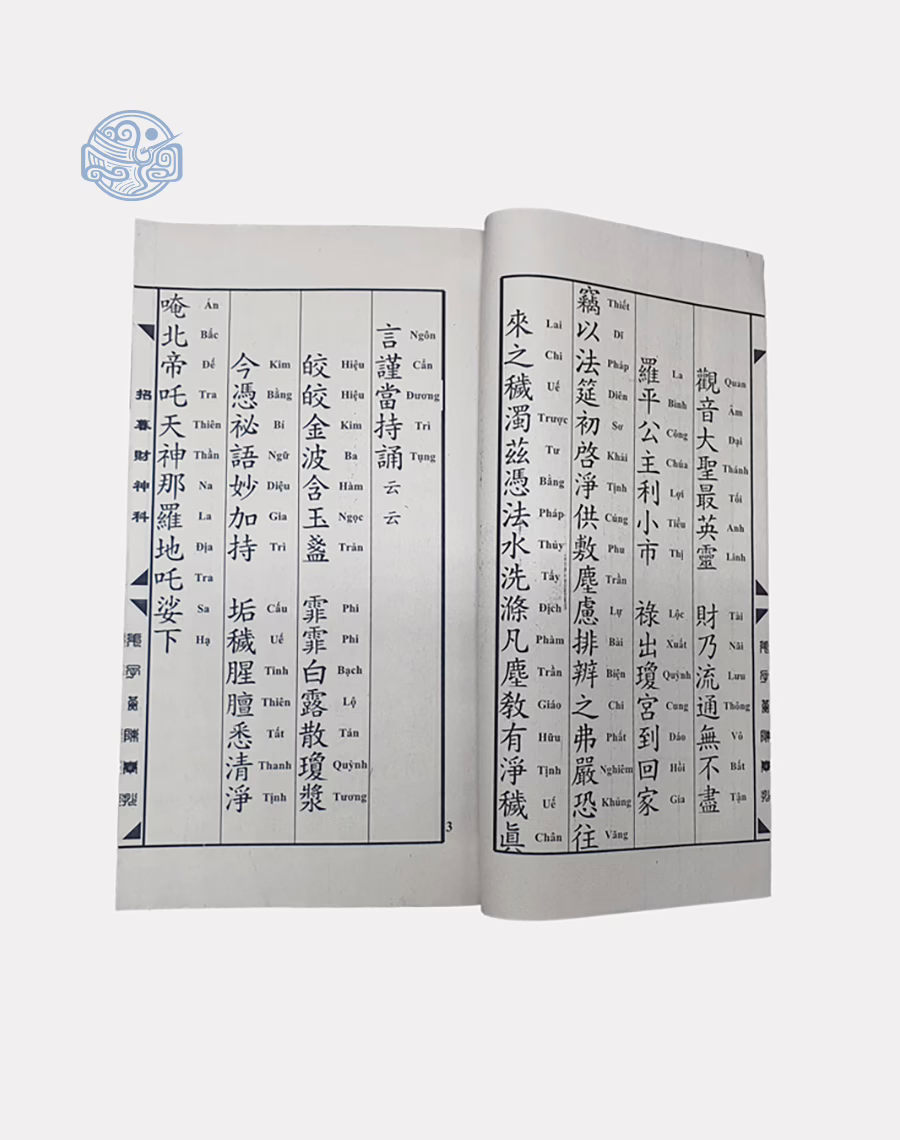 觀音大聖最英靈 財乃流通無不盡
Quan Âm Đại Thánh Tối Anh Linh Tài Nãi Lưu Thông Vô Bất Tận
羅平公主利小市 祿出瓊宮到回家
La Bình Công Chúa Lợi Tiểu Thị Lộc Xuất Quỳnh Cung Đáo Hồi Gia
竊以法筵初啓淨供敷塵慮排辦之弗嚴恐往
Thiết Dĩ Pháp Diên Sơ Khải Tịnh Cúng Phu Trần Lự Bài Biện Chi Phất Nghiêm Khủng Vãng
來之穢濁茲憑法水洗滌凡塵教有淨穢眞
Lai Chi Uế Trược Tư Bằng Pháp Thủy Tẩy Địch Phàm Trần Giáo Hữu Tịnh Uế Chân
言謹當持誦云云
Ngôn Cẩn Dương Trì Tụng
皎皎金波含玉盞 霏霏白露散瓊漿
Hiệu Hiệu Kim Ba Hàm Ngọc Trản Phi Phi Bạch Lộ Tán Quỳnh Tương
今憑祕語妙加持 垢穢腥膻悉清淨
Kim Bằng Bí Ngữ Diệu Gia Trì Cấu Uế Tinh Thiên Tất Thanh Tịnh
唵北帝吒天神那羅地吒娑下
Án Bắc Đế Tra Thiên Thần Na La Địa Tra Sa Hạ
招暮財神科
3